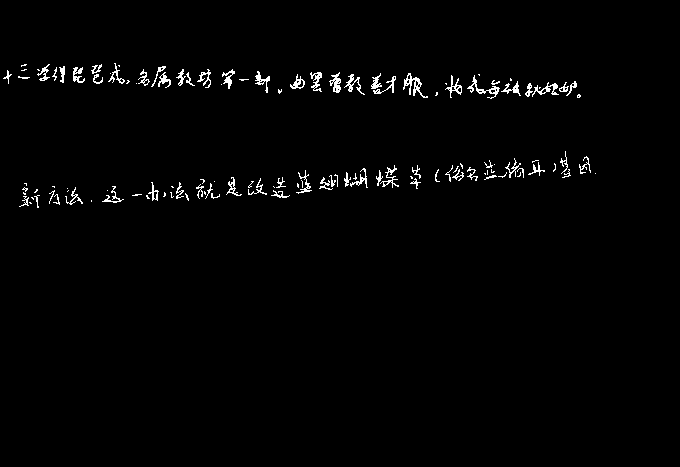 十三学得琵琶成,名属教坊第一部。曲罢曾教善才服,妆成每被秋娘妒。
新方法.这一办法就是改造蓝翅蝴蝶草(俗名蓝猪耳)基因.